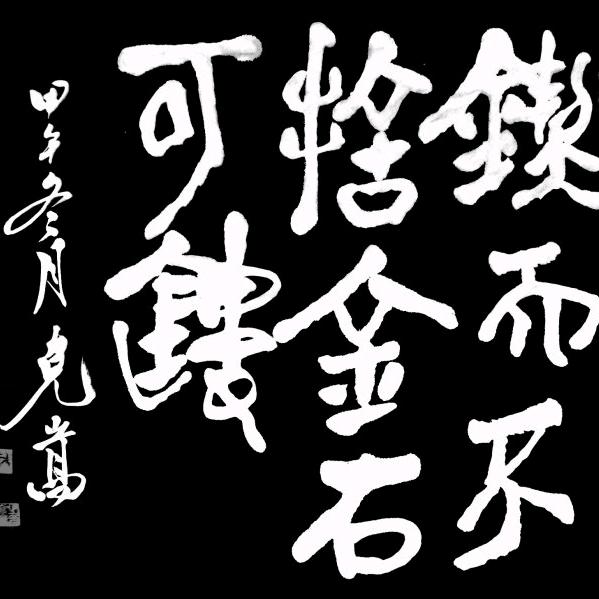 鍥而不
捨金石
可鏤
甲午冬月克